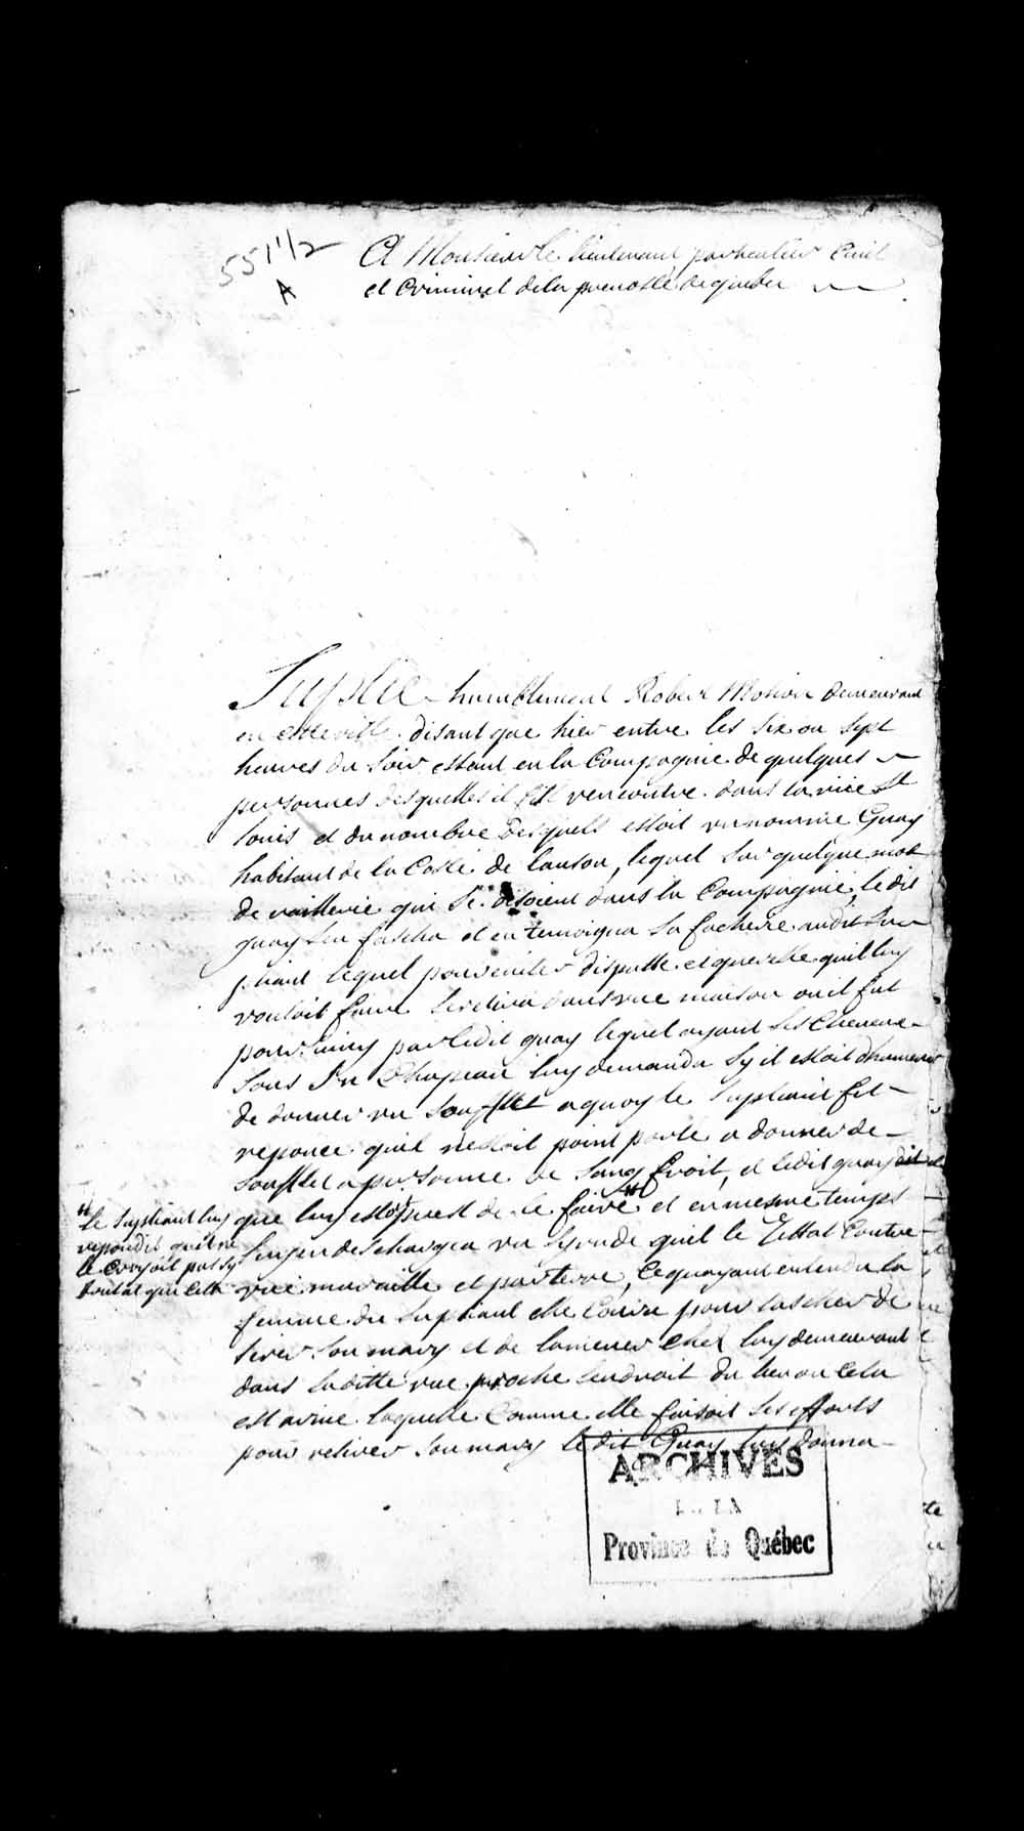 551 1/2
A
A Monsieur le lieutenant particulier Civil
et Criminel de la prevosté de quebec
Suplie humblement Robert Mossion demeurant
en cette ville disant que hier entre les six ou sept
heures du soir estant en la Compagnie de quelques
personnes desquelles il fit rencontre dans la rüe St
louis et du nombre desquels estoit un nommé Guay
habitant de la Coste de lauson, lequel sur quelque mot
de raillerie qui se disoient dans la Compagnie, ledit
guay sen fascha et en temoigna sa facherie audit Su
pliant lequel pour eviter disputte et querelle quil luy
vouloit faire se retira dans une maison ou il fut
poursuivy par ledit guay lequel ayant ses Cheveux
sous son Chapeau luy demanda sy il estoit dhumeur
de donner un soufflet a quoy le Supliant fit
reponce quil nestoit point porté a donner de
soufflet a personne de sang froit, et ledit guay dit
que luy estoit prest de le faire # et en mesme temps
# le Supliant luy
repondit quil ne
le Croyoit pas sy
brutal que cela
luy en deschargea un sy rude quil le jettat Contre
une muraille et par terre, Ce quayant entendu la
femme du Supliant elle Courre pour tascher de
tirer son mary et de lamener chez luy demeurant
dans laditte rue proche lendroit du lieu ou Cela
est arivé laquelle Comme elle faisoit ses efforts
pour retirer son mary ledit Guay luy donna
ARCHIVES
DE LA
Province de Québec